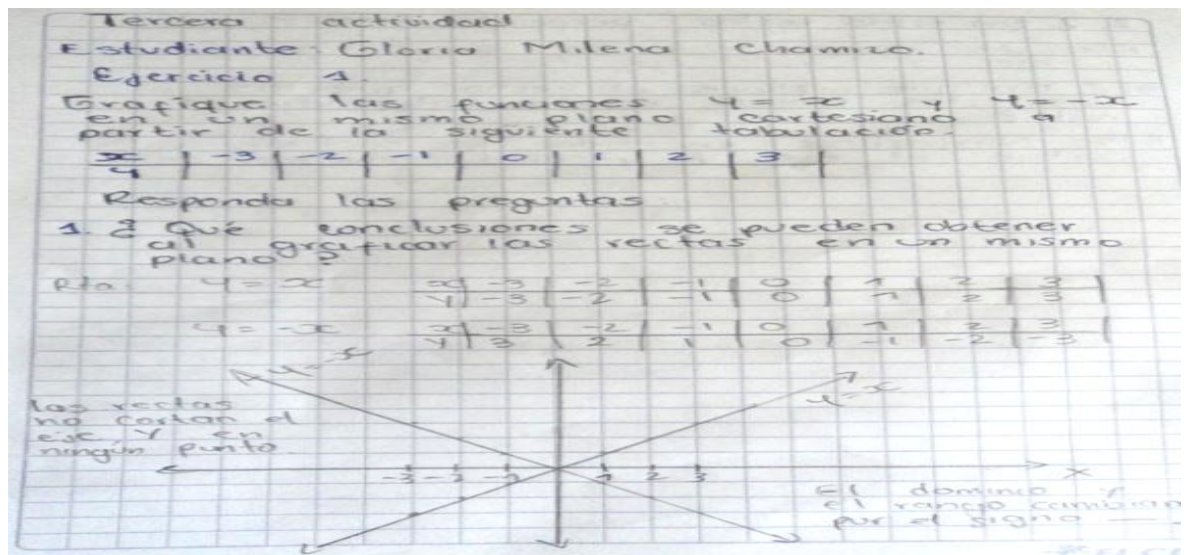 Tercera actividad
Estudiante Gloria Milena Chamizo.
Ejercicio 1.
Grafique las funciones y = x y y = -x
en un mismo plano cartesiano a
partir de la siguiente tabulación.
x | -3 | -2 | -1 | 0 | 1 | 2 | 3 |
y
Responda las preguntas
1. ¿Qué conclusiones se pueden obtener
al graficar las rectas en un mismo
plano?
Rta y = x x | -3 | -2 | -1 | 0 | 1 | 2 | 3 |
y | -3 | -2 | -1 | 0 | 1 | 2 | 3 |
y = -x x | -3 | -2 | -1 | 0 | 1 | 2 | 3 |
y | 3 | 2 | 1 | 0 | -1 | -2 | -3 |
y = -x
y = x
las rectas
no cortan el
eje Y en
ningún punto.
-3 -2 -1 1 2 3 x
El dominio y
el rango cambian
por el signo —.